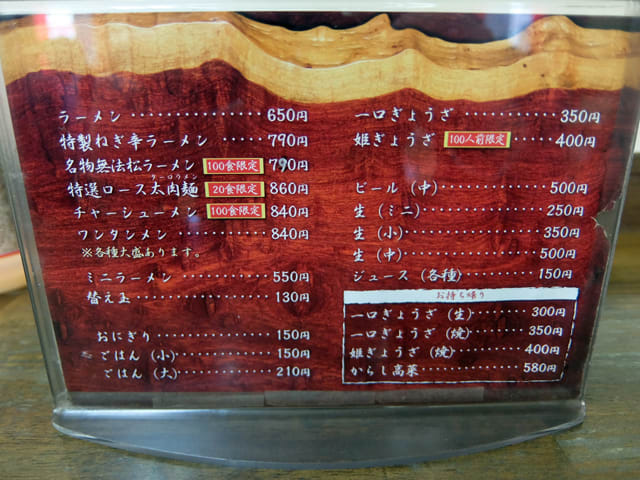 ラーメン ・・・・・・・・・・・・ 650円
特製ねぎ辛ラーメン ・・・・・ 790円
名物無法松ラーメン 100食限定 790円
特選ロース太肉麺 20食限定 860円
ターロウメン
チャーシューメン 100食限定 840円
ワンタンメン ・・・・・・・・・ 840円
※各種大盛あります。
ミニラーメン ・・・・・・・・・ 550円
替え玉 ・・・・・・・・・・・・・ 130円
おにぎり ・・・・・・・・・・・ 150円
ごはん (小) ・・・・・・・・・ 150円
ごはん (大) ・・・・・・・・・ 210円
一口ぎょうざ ・・・・・・・・・ 350円
姫ぎょうざ 100人前限定 ・・ 400円
ビール (中) ・・・・・・・・・ 500円
生 (ミニ) ・・・・・・・・・・ 250円
生 (小) ・・・・・・・・・・・ 350円
生 (中) ・・・・・・・・・・・ 500円
ジュース (各種) ・・・・・・・ 150円
お持ち帰り
一口ぎょうざ (生) ・・・・・ 300円
一口ぎょうざ (焼) ・・・・・ 350円
姫ぎょうざ (焼) ・・・・・・ 400円
からし高菜 ・・・・・・・・・ 580円